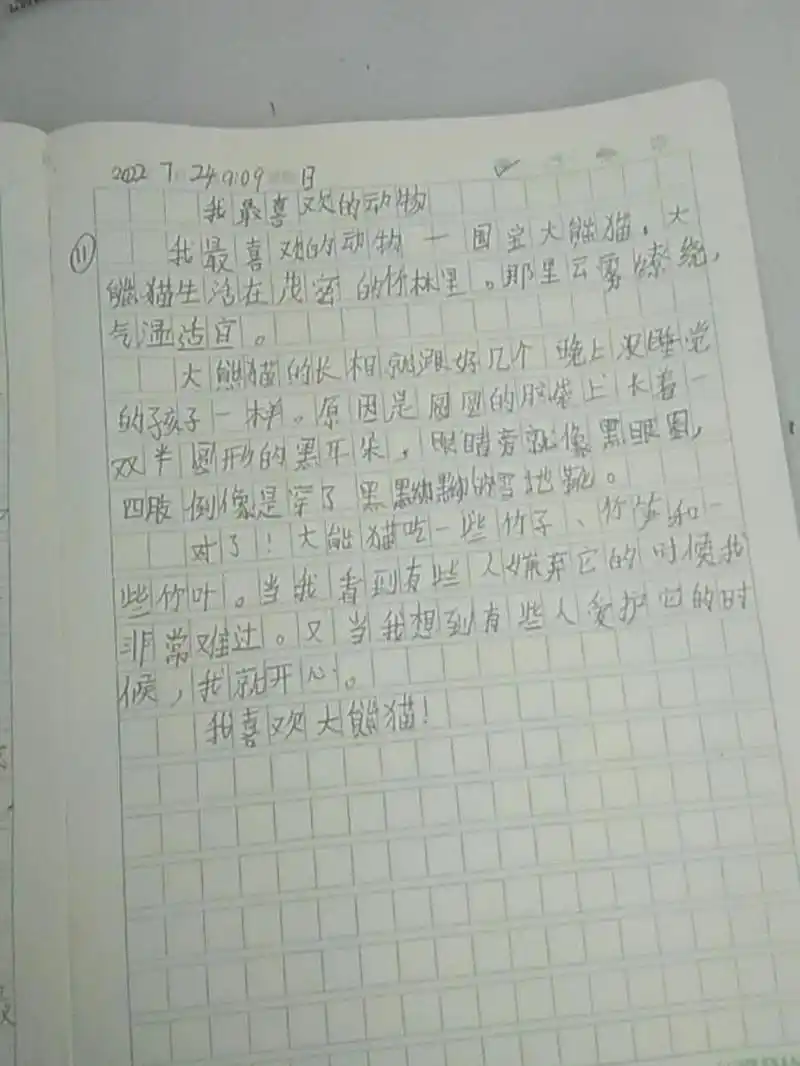 2022 7 24 9:09 日
我最喜欢的动物
⑪ 我最喜欢的动物一国宝大熊猫，大
熊猫生活在茂密的竹林里。那里云雾缭绕，
气温适宜。
大熊猫的长相就跟好几个晚上没睡觉
的孩子一样。原因是圆圆的脑袋上长着一
双半圆形的黑耳朵，眼睛旁就像黑眼圈，
四肢倒像是穿了黑黝黝的雪地靴。
对了！大熊猫吃一些竹子、竹笋和一
些竹叶。当我看到有些人嫌弃它的时候我
非常难过。又当我想到有些人爱护它的时
候，我就开心。
我喜欢大熊猫！